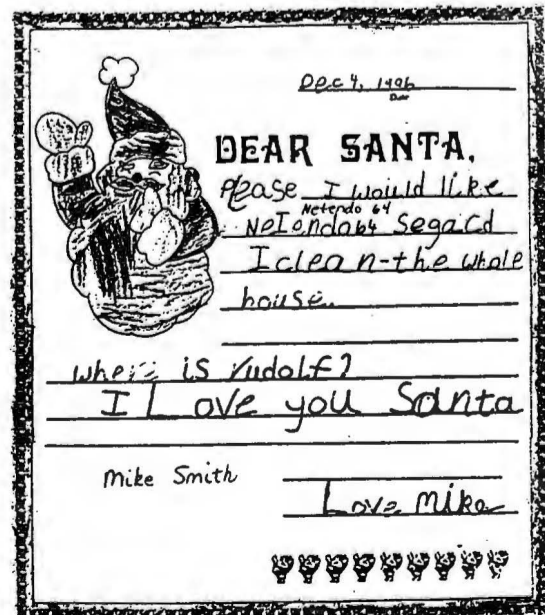 Dec 4, 1996
Date
DEAR SANTA,
Please I would like
Netendo 64
NeIondo64 Sega Cd
I clean-the whole
house.
where is rudolf?
I Love you Santa
Mike Smith
Love Mike